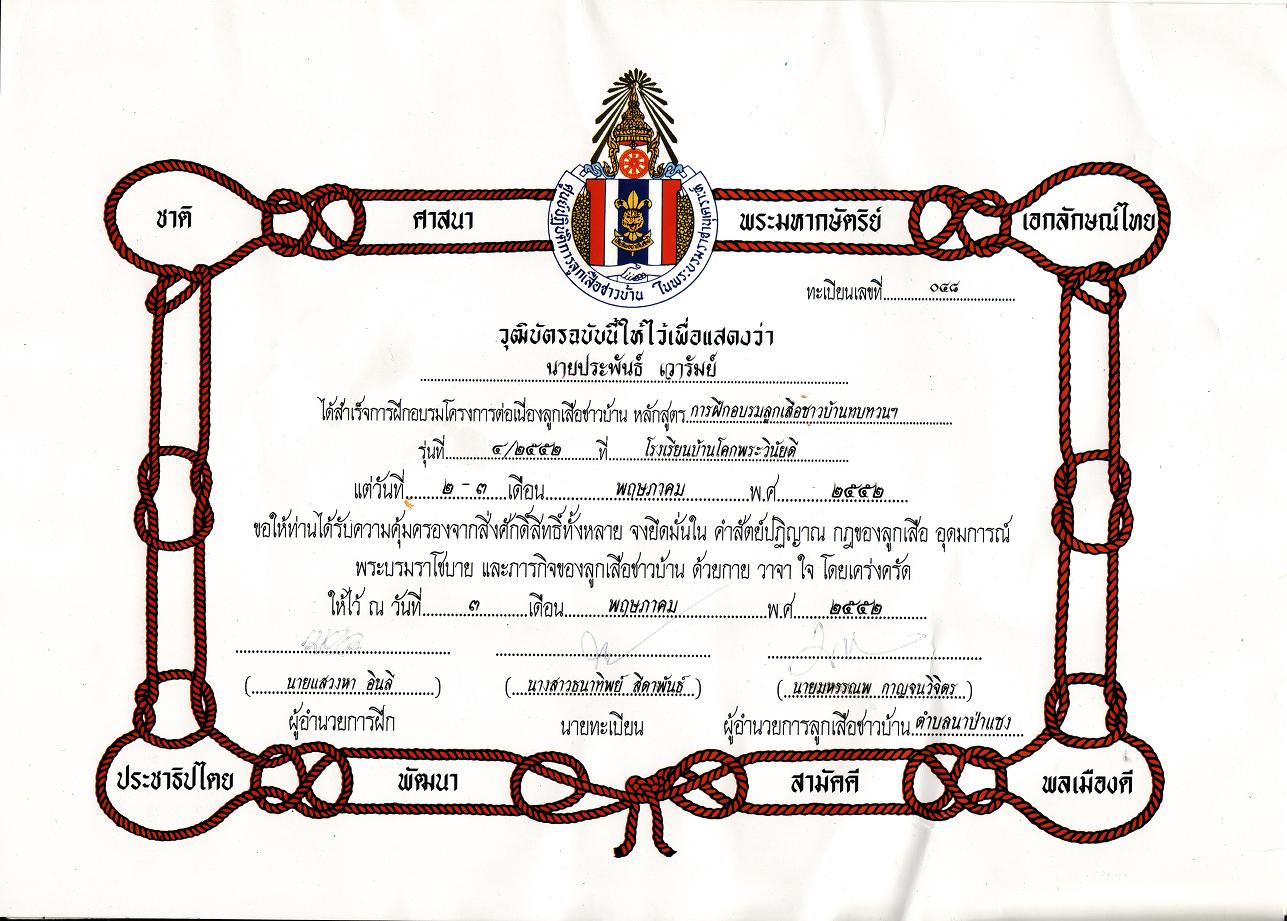 ชาติ
ศาสนา
พระมหากษัตริย์
เอกลักษณ์ไทย
ศูนย์ปฏิบัติการลูกเสือชาวบ้าน ในพระบรมราชานุเคราะห์
ทะเบียนเลขที่ ๐๔๘
วุฒิบัตรฉบับนี้ให้ไว้เพื่อแสดงว่า
นายประพันธ์ เวารัมย์
ได้สำเร็จการฝึกอบรมโครงการต่อเนื่องลูกเสือชาวบ้าน หลักสูตร การฝึกอบรมลูกเสือชาวบ้านทบทวนฯ
รุ่นที่ ๔/๒๕๕๒ ที่ โรงเรียนบ้านโคกพระวินัยดี
แต่วันที่ ๒ - ๓ เดือน พฤษภาคม พ.ศ ๒๕๕๒
ขอให้ท่านได้รับความคุ้มครองจากสิ่งศักดิ์สิทธิ์ทั้งหลาย จงยึดมั่นใน คำสัตย์ปฏิญาณ กฎของลูกเสือ อุดมการณ์
พระบรมราโชบาย และภารกิจของลูกเสือชาวบ้าน ด้วยกาย วาจา ใจ โดยเคร่งครัด
ให้ไว้ ณ วันที่ ๓ เดือน พฤษภาคม พ.ศ ๒๕๕๒
( นายแสวงหา อินลี ) ( นางสาวธนาทิพย์ สีดาพันธ์ ) ( นายมหรรณพ กาญจนวิจิตร )
ผู้อำนวยการฝึก นายทะเบียน ผู้อำนวยการลูกเสือชาวบ้าน ตำบลนาป่าแซง
ประชาธิปไตย
พัฒนา
สามัคคี
พลเมืองดี